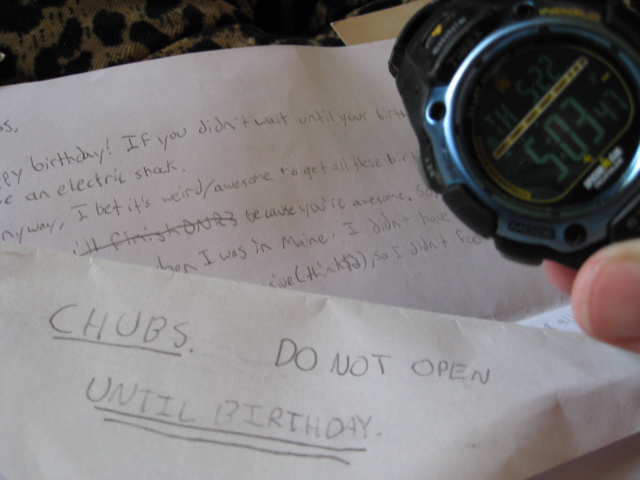 ppy birthday! If you didn't wait until your birth
an electric shock.
nyway, I bet it's weird/awesome to get all these birt
finish because you're awesome. so
when I was in Maine. I didn't have
(think), so I didn't
CHUBS. DO NOT OPEN
UNTIL BIRTHDAY.
INDIGLO
5-22
5:03 47
IRONMAN
MODE